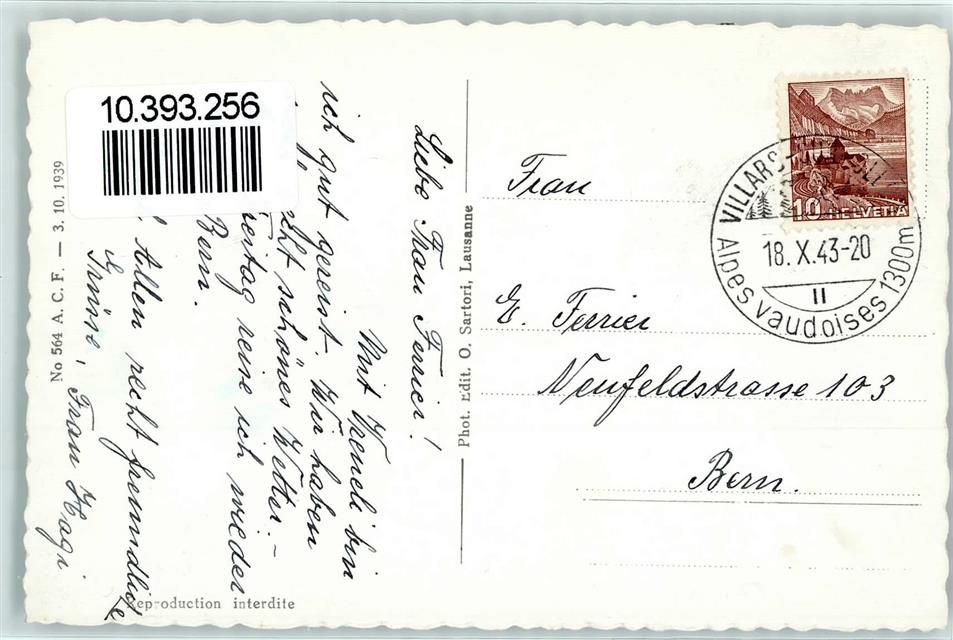 10.393.256
Liebe Frau Ferrier!
Mit Vreneli bin
ich gut gereist. Wir haben
recht schönes Wetter. –
Freitag reise ich wieder
Bern.
Allen recht freundliche
Grüsse, Frau Hagi
No 564 A. C. F. — 3. 10. 1939
Reproduction interdite
Phot. Edit. O. Sartori, Lausanne
10 HELVETIA
VILLARS
18. X. 43-20
II
Alpes vaudoises 1300m
Frau
E. Ferrier
Neufeldstrasse 103
Bern.